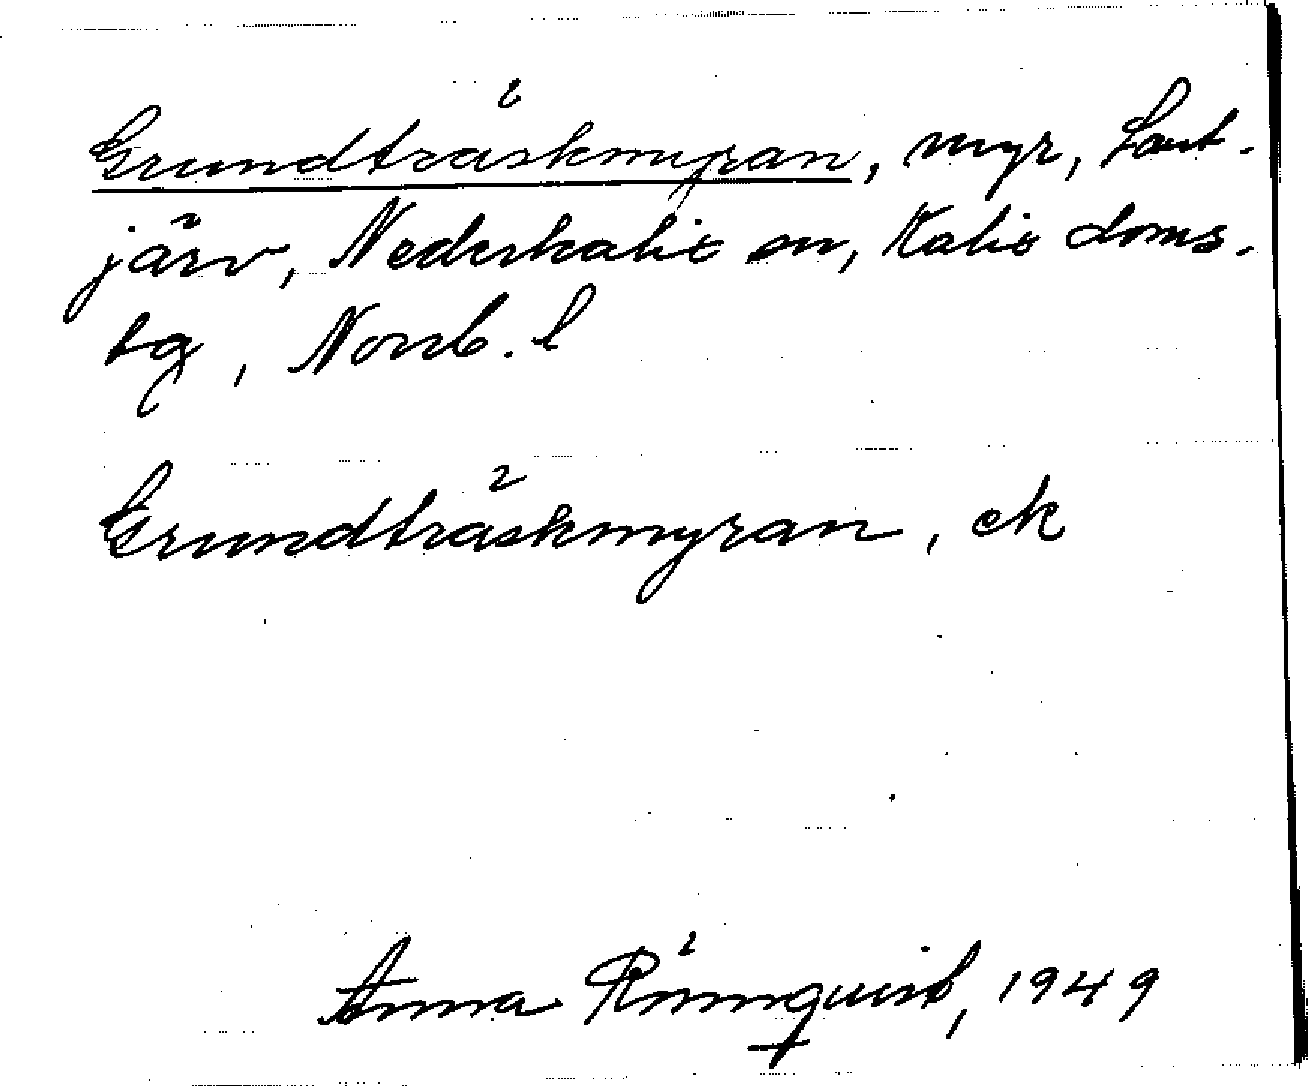 Grundträskmyran, myr, Lant-
järv, Nederkalix sn, Kalix doms.
tg, Norrb. l
Grundträskmyran, ek
Anna Rönnquist, 1949